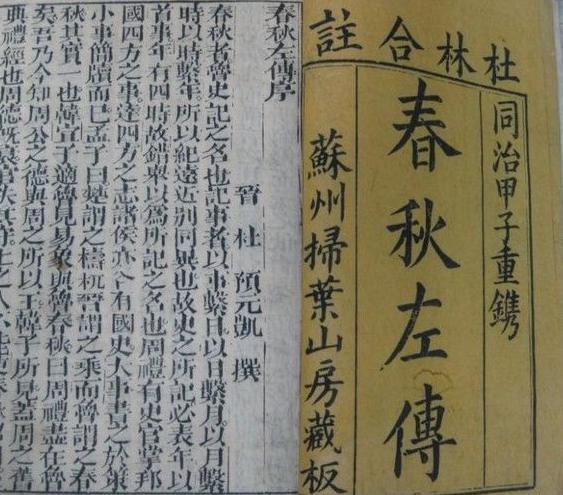 杜林合註
同治甲子重鐫
春秋左傳
蘇州掃葉山房藏板
春秋左傳序
晉 杜 預元凱 撰
春秋者魯史記之名也記事者以事繫日以日繫月以月繫
時以時繫年所以紀遠近別同異也故史之所記必表年以
首事年有四時故錯舉以爲所記之名也周禮有史官掌邦
國四方之事達四方之志諸侯亦各有國史大事書之於策
小事簡牘而已孟子曰楚謂之檮杌晉謂之乘而魯謂之春
秋其實一也韓宣子適魯見易象與魯春秋曰周禮盡在魯
矣吾乃今知周公之德與周之所以王韓子所見蓋周之舊
典禮經也周德既衰官失其守上之人不能使春秋